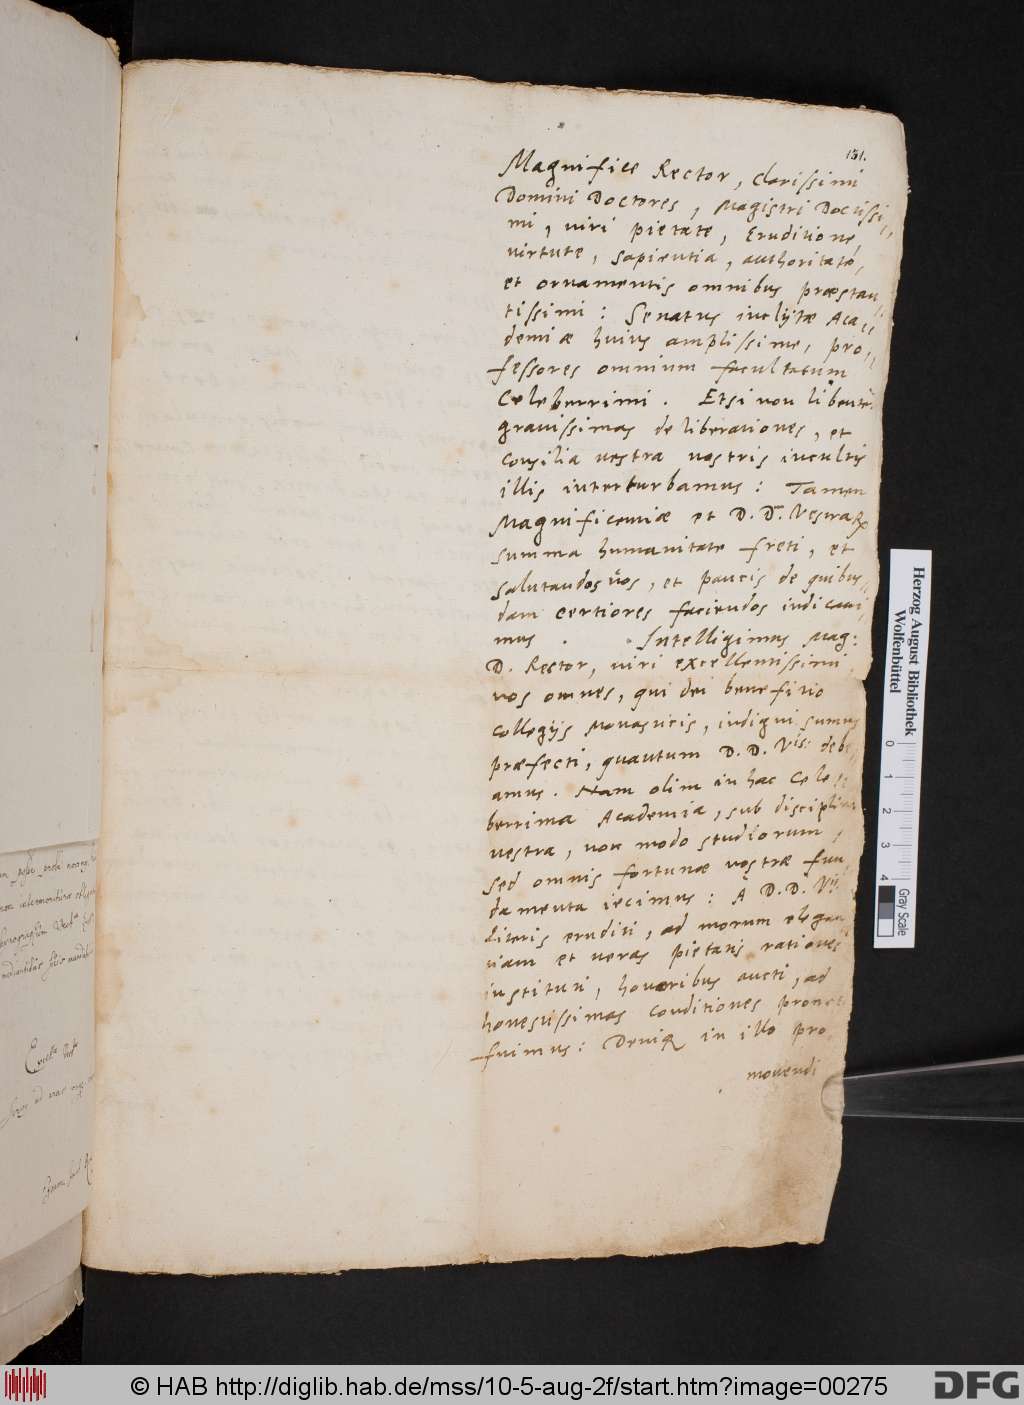 151.
Magnifice Rector, clarissimi
Domini Doctores, Magistri Doctissi,,
mi, viri pietate, Eruditione,
virtute, sapientia, authoritate,
et ornamentis omnibus præstan,,
tissimi: Senatus inclijtæ Aca,,
demiæ huius amplissime, pro,,
fessores omnium facultatum
Celeberrimi. Etsi non libenter
gravissimas deliberationes, et
consilia vestra nostris incultis
illis interturbamus: Tamen
Magnificentiæ et D. D. Vestraꝝ
summa humanitate freti, et
salutandos vos, et paucis de quibus,,
dam certiores faciendos iudicavi,
mus. Intelligimus Mag:
D. Rector, viri excellentissimi,
nos omnes, qui dei beneficio
collegijs Monasticis, indigni sumus
præfecti, quantum D. D. Vis: debe,
amus. Nam olim in hac Cele
berrima Academia, sub disciplina
vestra, non modo studiorum,
sed omnis fortunæ nostræ fun
damenta iecimus: A D. D. Vis:
literis eruditi, ad morum elegan
tiam et veras pietatis rationes
instituti, honoribus aucti, ad
honestissimas conditiones
fuimus: Deniqꝫ in illo pro,
movendi
Herzog August Bibliothek
Wolfenbüttel
0 1 2 3 4
Gray Scale
© HAB http://diglib.hab.de/mss/10-5-aug-2f/start.htm?image=00275
DFG